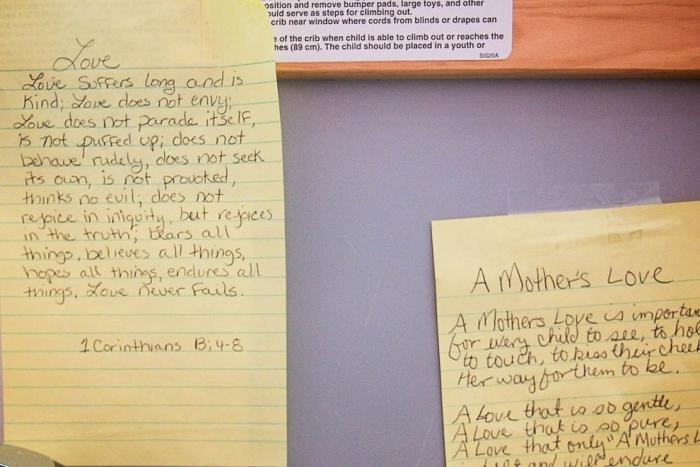 osition and remove bumper pads, large toys, and other
ould serve as steps for climbing out.
crib near window where cords from blinds or drapes can
of the crib when child is able to climb out or reaches the
hes (89 cm). The child should be placed in a youth or
SI020A
Love
Love suffers long and is
Kind; Love does not envy;
Love does not parade itself,
is not puffed up; does not
behave rudely, does not seek
its own, is not provoked,
thinks no evil; does not
rejoice in iniquity, but rejoices
in the truth; bears all
things, believes all things,
hopes all things, endures all
things. Love never fails.
1 Corinthians 13; 4-8
A Mother's Love
A Mothers Love is importan
for every child to see, to hol
to touch, to kiss their cheek
Her way for them to be.
A Love that is so gentle,
A Love that is so pure,
A Love that only "A Mothers L
and will endure